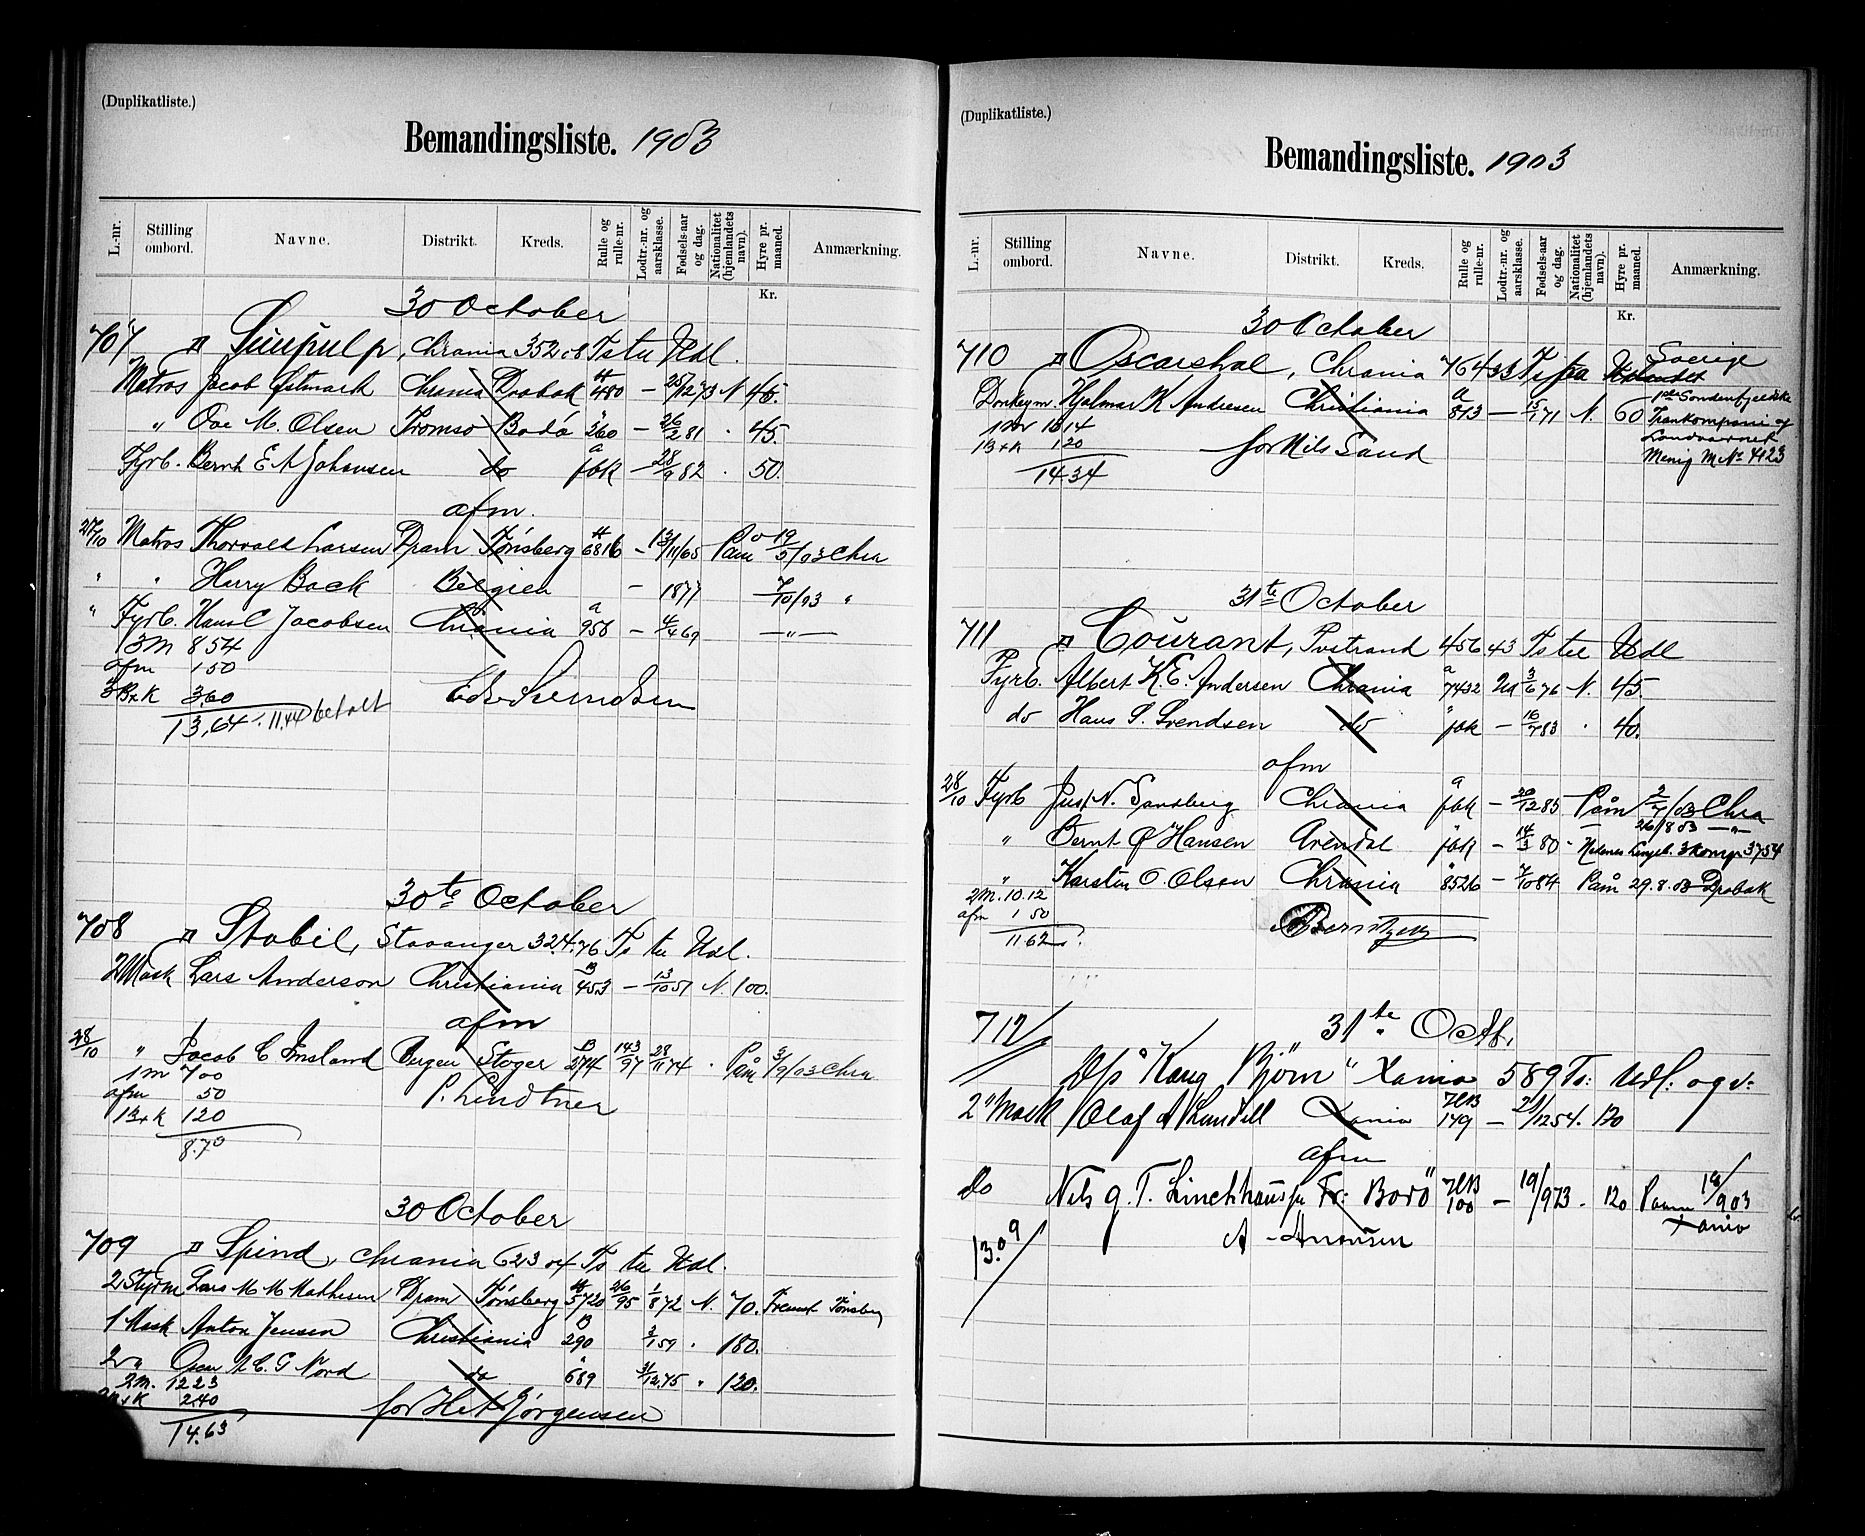 (Duplikatliste.)
Bemandingsliste. 1903
L.-nr. Stilling ombord. Navne. Distrikt. Kreds. Rulle og rulle-nr. Lodtr.-nr. og aarsklasse. Fødsels-aar og dag. Nationalitet (hjemlandets navn). Hyre pr. maaned. Anmærkning.
Kr.
30 October
707 Sunpulp, Chrania 352.08 Ts til Udl.
Matros Jacob Østmark Chrania Drøbak 480 — 25/12 73 N 45.
" Ove M. Olsen Tromsø Bodø 260 — 26/2 81 . 45.
Fyrb. Bernh E A Johansen do a fbk — 28/9 82 . 50.
afm.
27/10 Matros Thorvald Larsen Dram Tønsberg 6816 — 13/11/65 Paam 19/5/03 Chra
" " Harry Back Belgien — 1877 7/10/03 "
" Fyrb. Hans C Jacobsen Chrania a 956 — 4/4 69 — " —
3 M 8 54
afm 1 50
3 B+K 3.60
13,64 11.44 betalt
Edv Svendsen
30te October
708 Stabil, Stavanger 324.76 Ts til Udl.
2 Mask Lars Anderson Christiania B 453 — 13/10 51 N. 100.
afm
28/10 " Jacob C Imsland Bergen Stager B 274 143/97 28/11 74 . Paam 3/9/03 Chra
1 m 7 00
afm 50
1 B+K 1 20
8.70
P. Lindtner
30 October
709 Spind, Chrania 623.04 Ts til Udl.
2 Styrm Lars M M Mathisen Dram Tønsberg 5720 26/95 1/8 72 N. 70. Fremst Tønsberg
1 Mask Anton Jensen Christiania B 290 3/1 59 . 180.
2 " Oscar A C. G Nord do " 689 31/12 75 " 120.
3 M. 12 23
2 B+K 2.40
14.63
for H et Jørgensen
(Duplikatliste.)
Bemandingsliste. 1903
L.-nr. Stilling ombord. Navne. Distrikt. Kreds. Rulle og rulle-nr. Lodtr.-nr. og aarsklasse. Fødsels-aar og dag. Nationalitet (hjemlandets navn). Hyre pr. maaned. Anmærkning.
Kr.
30 October
710 Oscarshal, Chrania 764.33 Ts fra Udlandet Sverige
Donkeym. Hjalmar K Andresen Christiania a 813 — 15/1 71 N. 60 1ste Søndenfjeldske
Trankompani og
Landvaernet
Menig M No 4123
1 m 13 14
1 B+K 1 20
14 34
for Nils Sand
31te October
711 Courant, Tvetrand 456.43 Ts til Udl
Fyrb. Albert K. E. Andersen Chrania a 7432 3/6 76 N. 45.
do Hans S. Svendsen do " fbk — 16/7 83 . 40.
afm
28/10 Fyrb Just N. Sandberg Chrania a fbk — 20/12 85 — Paam 2/7/03 Chra
26/8 03 — " —
" Bernt Ø Hansen Arendal " fbk — 14/3 80 - 3 komp 3754
" Karsten O. Olsen Chrania " 8526 — 7/10 84 Paam 29.8.03 Drøbak
2 M. 10.12
afm 1 50
11 62
31te Octb.
712
D/S "Kong Bjørn" Xania 589 Ts: Udl. og v.
2' Mask Olaf A Lundell Xania 149 — 21/12 54. 120
afm
do Nils G. T. Linckhausen Fr: Borø 100 — 19/9 73 . 120 Paam 18/9 03
Xania
13.09
A Aronsen